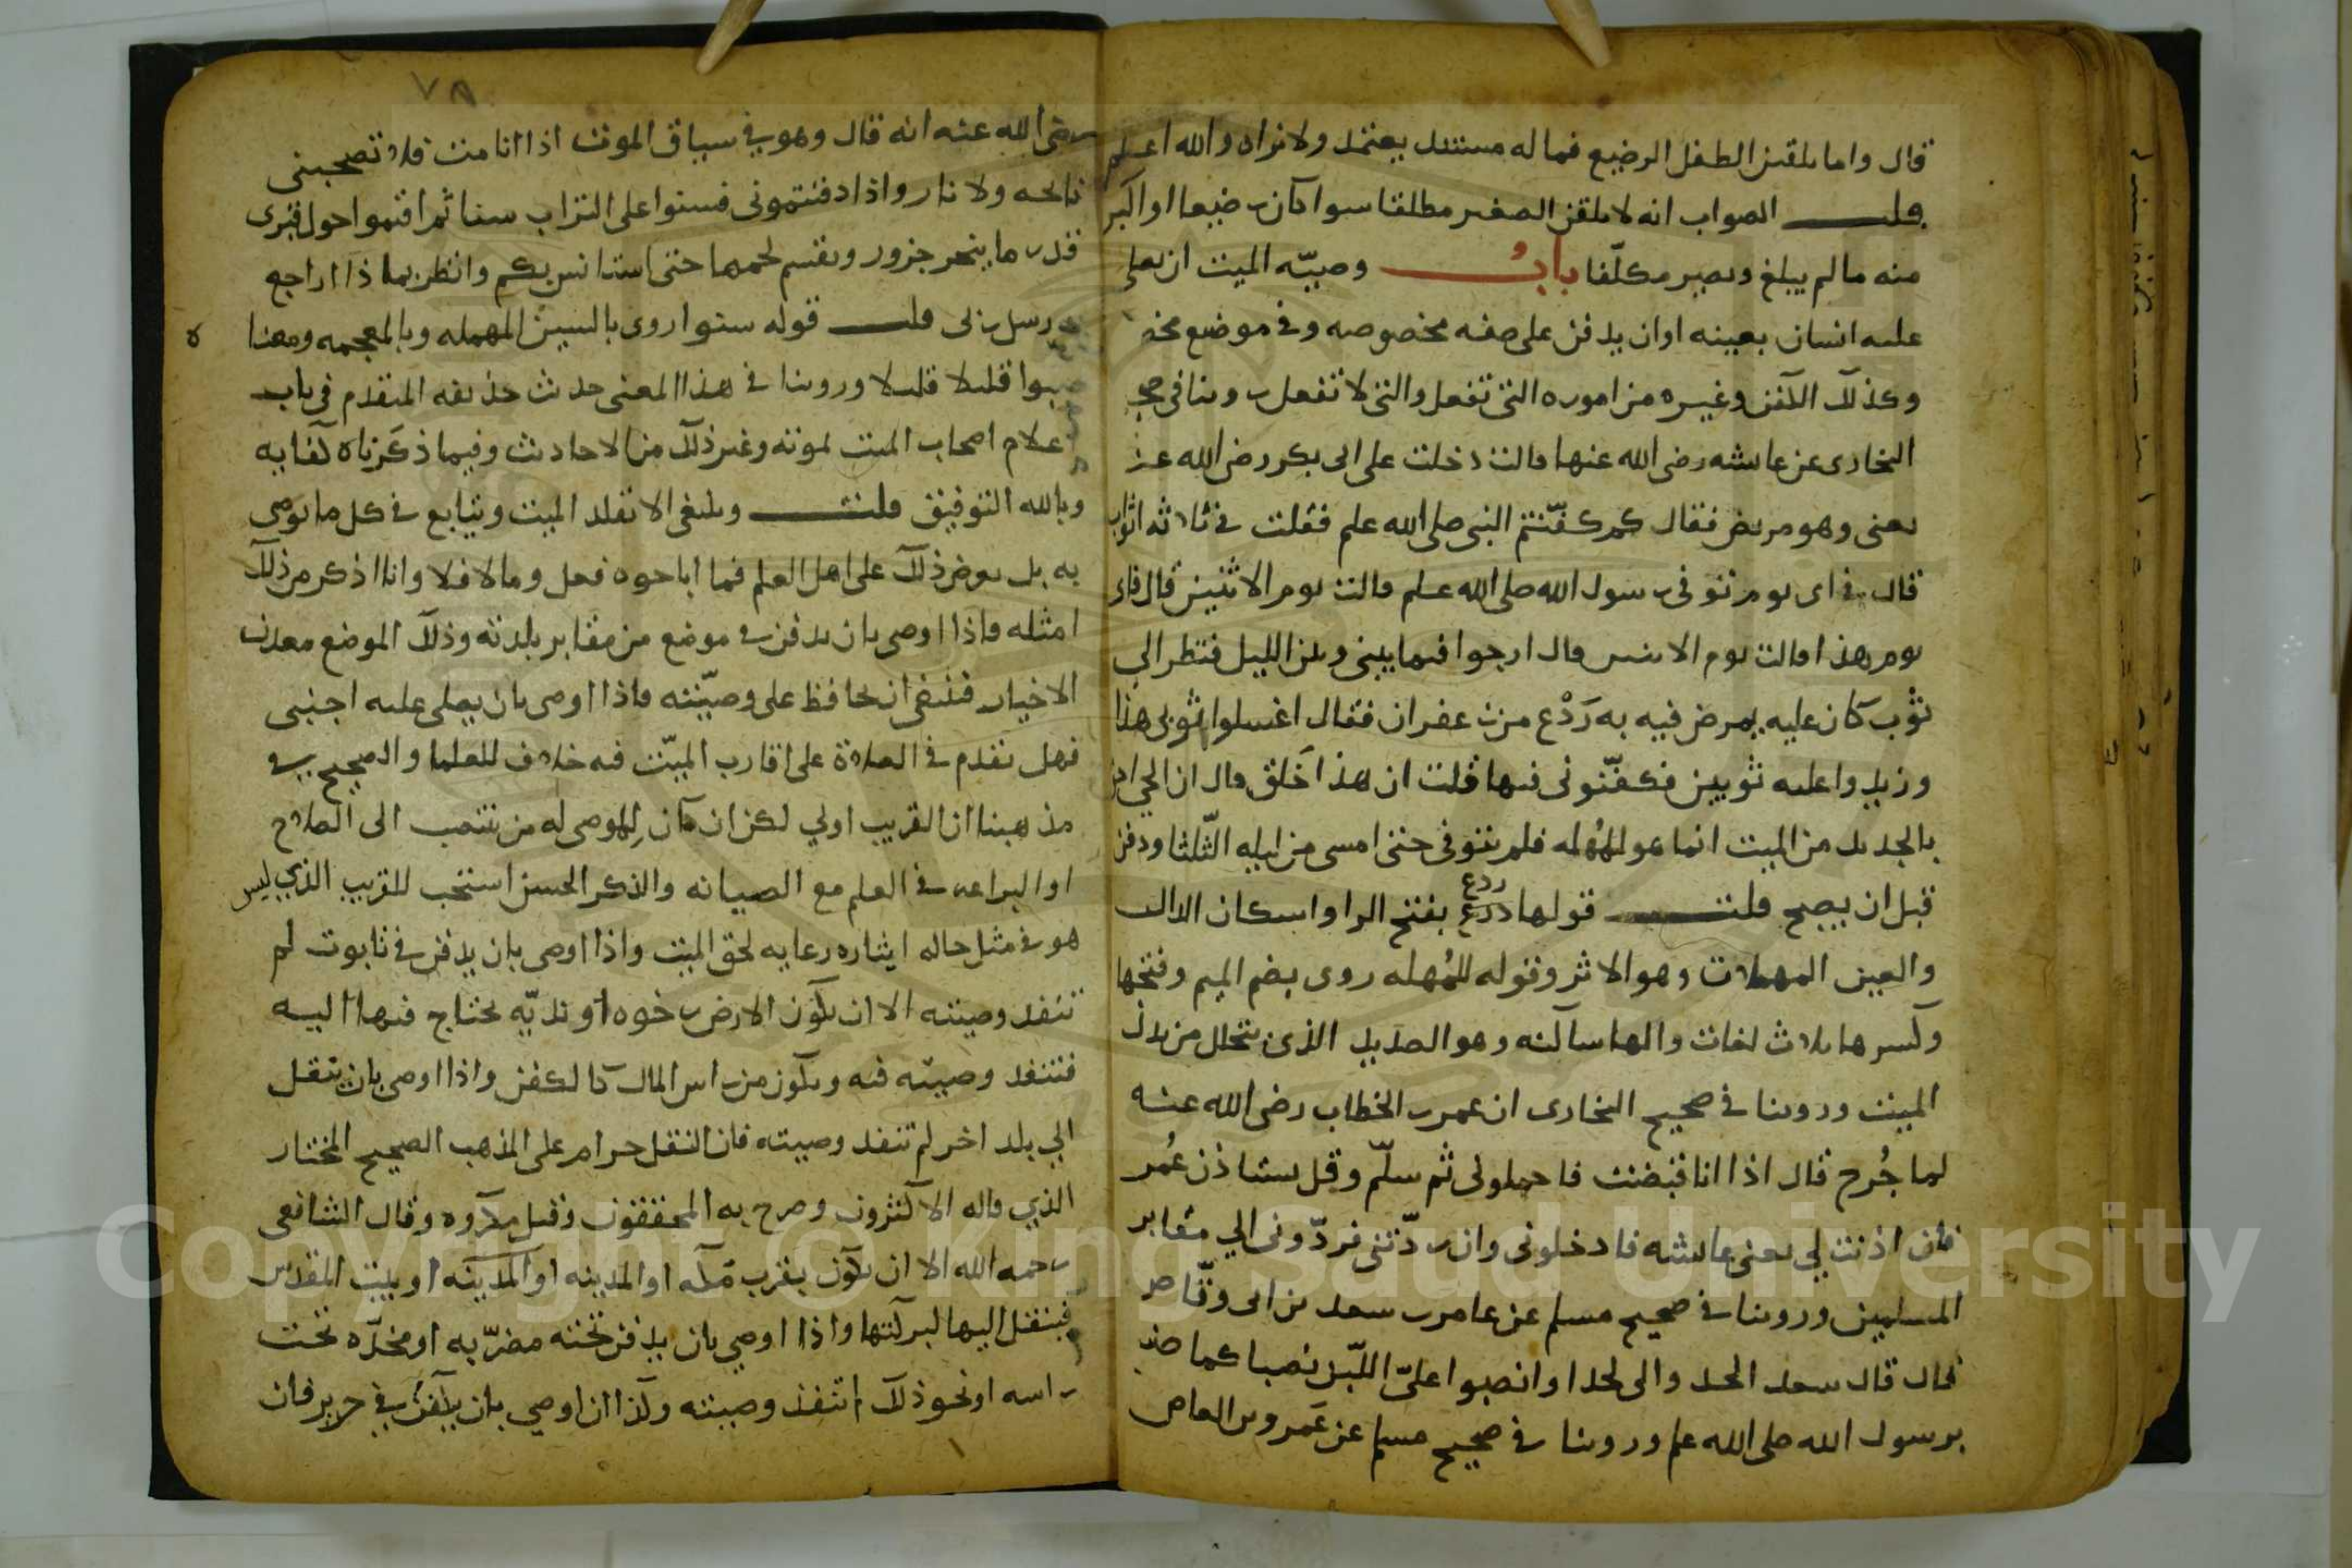 قال واما تلقين الطفل الرضيع فما له مستند يعتمد ولا نراه والله اعلم
قلت الصواب انه لا يلقن الصغير مطلقا سوا كان رضيعا او اكبر
منه ما لم يبلغ ويصير مكلّفا بابُ وصيّه الميت ان يصلي
عليه انسان بعينه او ان يدفن على صفه مخصوصه وفي موضع
وكذلك الكفن وغيره من اموره التى تفعل والتى لا تفعل روينا فى
البخارى عن عايشه رضى الله عنها قالت دخلت على ابى بكر رضى الله
يعنى وهو مريض فقال كم كفّنتم النبى صلى الله علم فقلت في ثلاثه اثواب
قال في اى يوم توفى رسول الله صلى الله علم قالت يوم الاثنين قال فاى
يوم هذا قالت يوم الاثنين قال ارجوا فيما بينى وبين الليل فنظر الى
ثوب كان عليه يمرض فيه به رَدْع من زعفران فقال اغسلوا ثوبى هذا
وزيدوا عليه ثوبين فكفّنونى فيها قلت ان هذا خَلق قال ان الحى
بالجديد من الميت انما هو للمُهله فلم يتوفى حتى امسى من ليله الثّلثا ودفن
قبل ان يصبح قلت قولها ردع ردع بفتح الرا واسكان الدال
والعين المهملات وهو الاثر وقوله للمُهله روى بضم الميم وفتحها
وكسرها ثلاث لغات والها ساكنه وهو الصديد الذى يتحلل من بدن
الميت وروينا في صحيح البخارى ان عمر بن الخطاب رضى الله عنه
لما جُرح قال اذا انا قبضت فاحملونى ثم سلّم وقل يستاذن عُمر
فان اذنت لي يعنى عايشه فادخلونى وان ردّتنى فردّونى الي مقابر
المسلمين وروينا في صحيح مسلم عن عامر بن سعد بن ابى وقّاص
قال قال سعد الحدوا لى لحدا وانصبوا علىّ اللّبن نصبا كما صنع
برسول الله صلى الله علم وروينا في صحيح مسلم عن عَمرو بن العاص
٧٨
رضى الله عنه انه قال وهو في سياق الموت اذا انا مت فلا تصحبنى
نايحه ولا نار واذا دفنتمونى فسنوا على التراب سنا ثم اقيموا حول قبرى
قدر ما ينحر جزور ويقسم لحمها حتى استانس بكم وانظر بماذا اراجع
رسل ربى قلت قوله سنوا روى بالسين المهمله وبالمعجمه ومعناه
صبوا قليلا قليلا وروينا في هذا المعنى حديث حذيفه المتقدم فى باب
اعلام اصحاب الميت لموته وغير ذلك من الاحاديث وفيما ذكرناه كفايه
وبالله التوفيق قلت وينبغى الا تقلد الميت ويتابع في كل ما يوصى
به بل يعرض ذلك على اهل العلم فما اباحوه فعل وما لا فلا وانا اذكر من ذلك
امثله فاذا اوصى بان يدفن في موضع من مقابر بلدته وذلك الموضع معدن
الاخيار فينبغى ان يحافظ على وصيّته فاذا اوصى بان يصلى عليه اجنبى
فهل يقدم في الصلاة على اقارب الميّت فيه خلاف للعلما والصحيح في
مذهبنا ان القريب اولي لكن ان كان الموصى له من ينسب الى الصلاح
او البراعه في العلم مع الصيانه والذكر الحسن استحب للقريب الذي ليس
هو في مثل حاله ايثاره رعايه لحق الميت واذا اوصى بان يدفن في تابوت لم
تنفد وصيته الا ان تكون الارض رخوه او نديّه يحتاج فيها اليه
فتنفد وصيته فيه ويكون من راس المال كالكفن واذا اوصى بان ينقل
الي بلد اخر لم تنفد وصيته فان النقل حرام على المذهب الصحيح المختار
الذي قاله الاكثرون وصرح به المحققون وقيل مكروه وقال الشافعى
رحمه الله الا ان يكون بقرب مكه او المدينه او المدينه او بيت المقدس
فينقل اليها لبركتها واذا اوصي بان يدفن تحته مضرّبه او مخدّه تحت
راسه او نحو ذلك لم تنفذ وصيته وكذا ان اوصي بان يكفن في حرير فان
Copyright © King Saud University